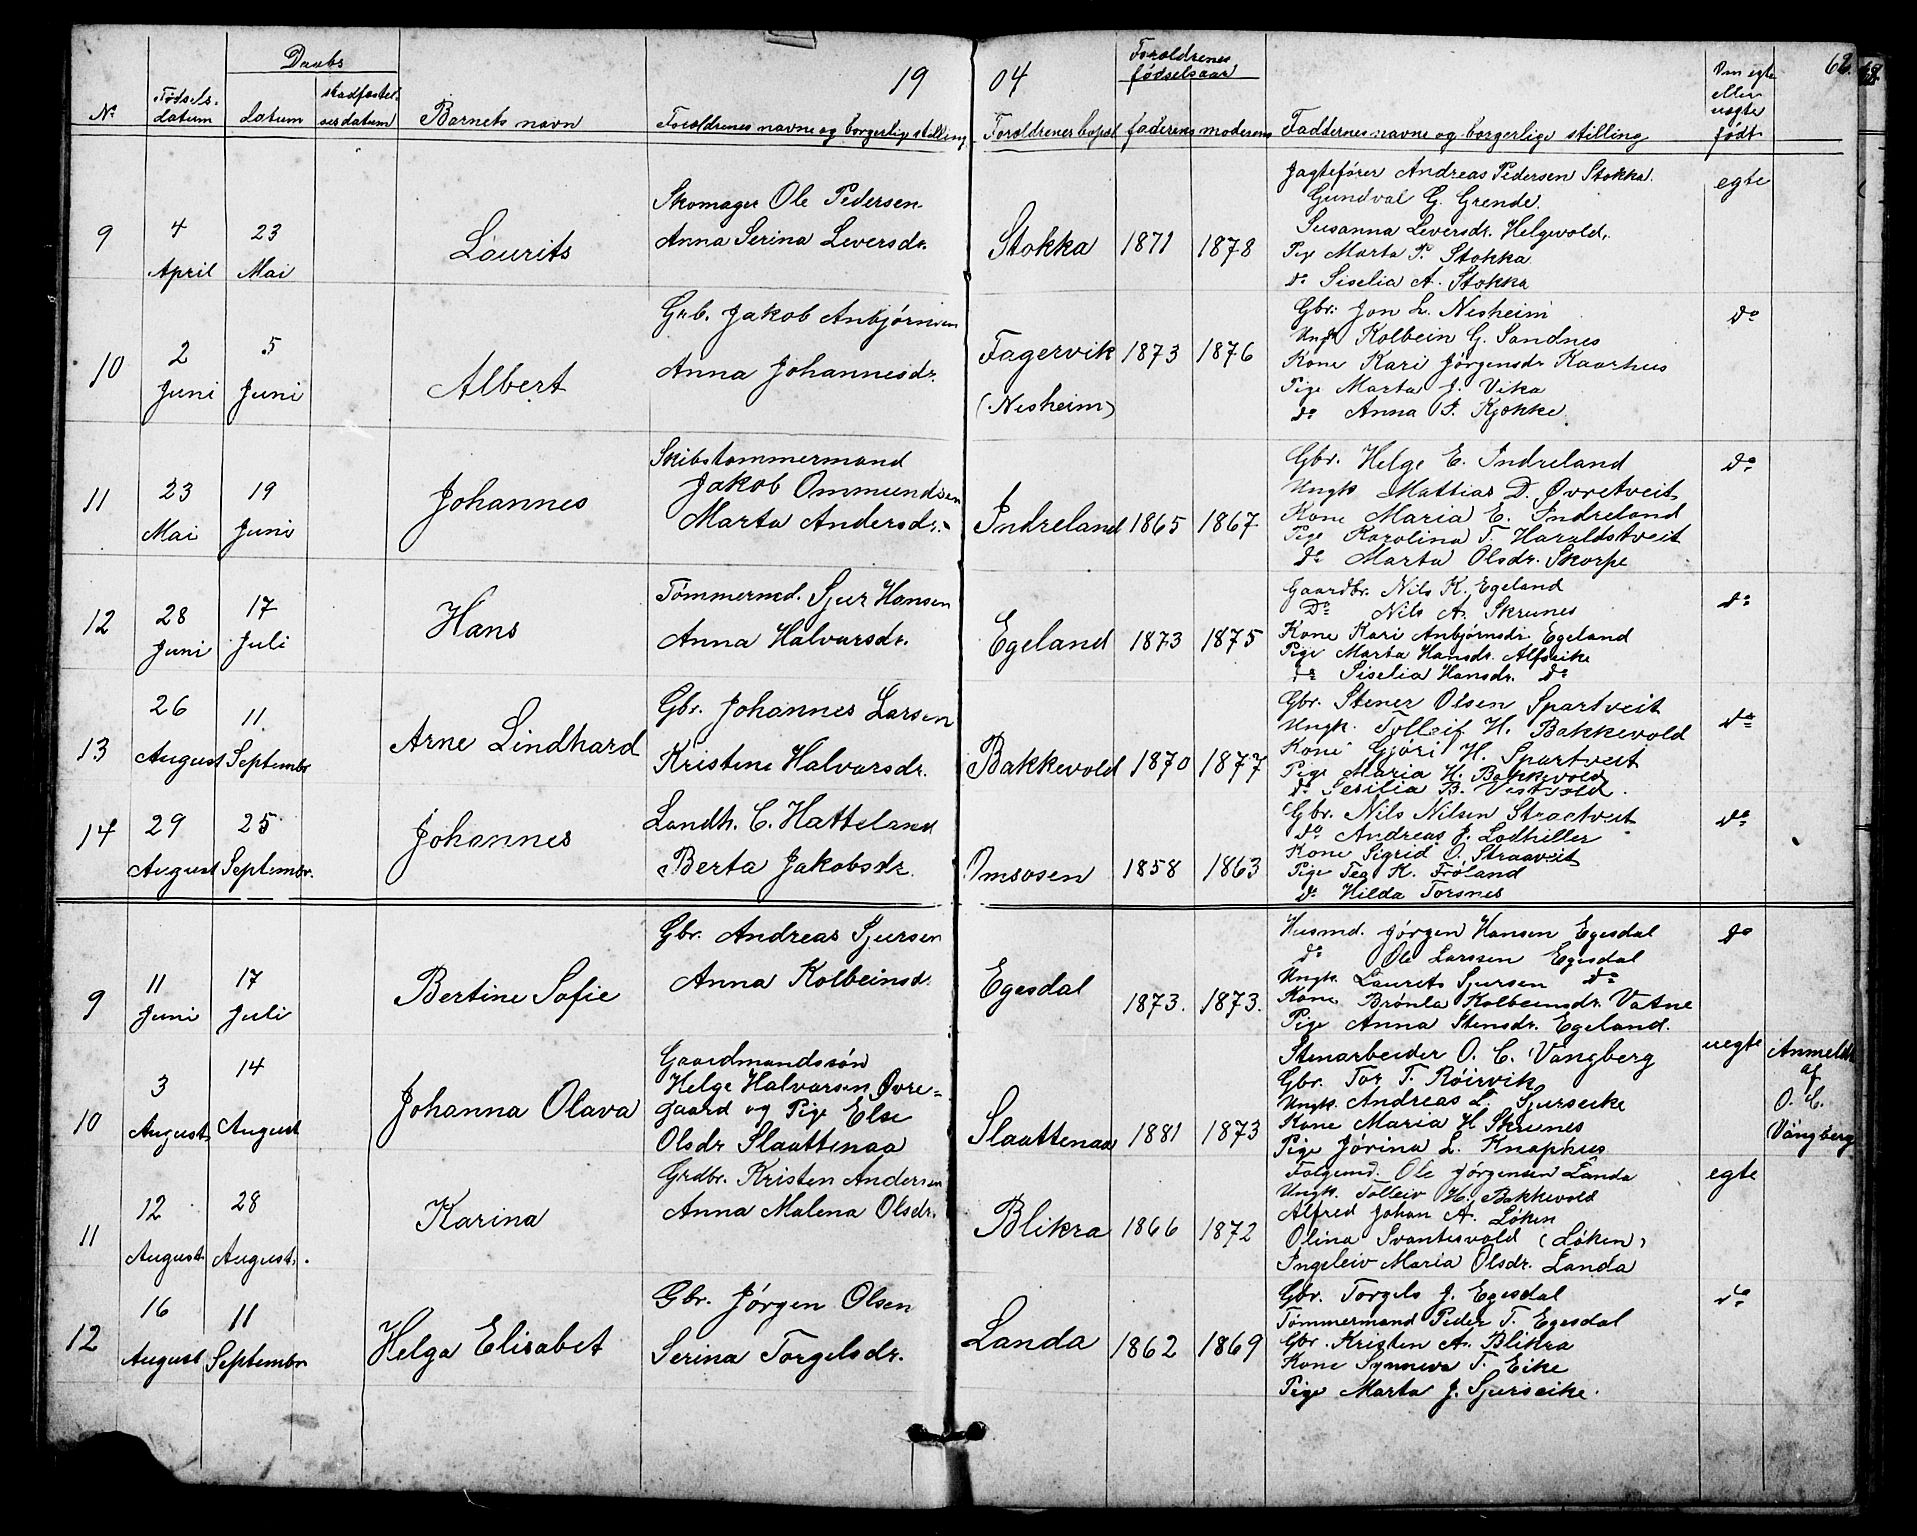 19 04
62.
No
Fødsels-
datum
Daabs
datum
stadfæstel-
sesdatum
Barnets navn
Forældrenes navne og borgerlig stilling
Forældrenes bopæl
Forældrenes
fødselsaar
faderens moderens
Faddernes navne og borgerlige stilling
Om egte
eller
uegte
født
9
4
April
23
Mai
Laurits
Skomager Ole Pedersen
Anna Serina Leversdr.
Stokka 1871 1878
Jagtefører Andreas Pedersen Stokka.
Gundval G. Grende.
Susanna Leversdr. Helgevold.
Pige Marta P. Stokka
do Siselia A. Stokka
egte
10
2
Juni
5
Juni
Albert
Grb. Jakob Anbjørnsen
Anna Johannesdr.
Fagervik 1873 1876
(Nesheim)
Gbr. Jon L. Nesheim
Ungk. Kolbein G. Sandnes
Kone Kari Jørgensdr Kaarhus
Pige Marta J. Vika
do Anna J. Kjokke
do
11
23
Mai
19
Juni
Johannes
Skibstømmermand
Jakob Ommundsen
Marta Andersdr.
Indreland 1865 1867
Gbr. Helge E. Indreland
Ungk Mattias D. Øvretveit
Kone Maria E. Indreland
Pige Karolina T. Haraldstveit
do Marta Olsdr. Skorpe
do
12
28
Juni
17
Juli
Hans
Tømmermd. Sjur Hansen
Anna Halvarsdr.
Egeland 1873 1875
Gaardbr. Nils K. Egeland
Do Nils A. Skrunes
Kone Kari Anbjørnsdr. Egeland
Pige Marta Hansdr. Alfseike
do Siselia Hansdr. do
do
13
26
August
11
Septembr
Arne Lindhard
Gbr. Johannes Larsen
Kristene Halvarsdr.
Bakkevold 1870 1877
Gbr. Stener Olsen Spartveit
Ungk. Tolleif H. Bakkevold
Kone Gjøri H. Spartveit
Pige Maria H. Bakkevold
do Sesilia B. Vestvold.
do
14
29
August
25
Septembr.
Johannes
Landh. C. Hatteland
Berta Jakobsdr.
Omsosen 1858 1863
Gbr. Nils Nilsen Straatveit
do Andreas J. Lodhiller
Kone Sigrid O. Straaveit
Pige Tea K. Frøland
do Hilda Torsnes
do
9
11
Juni
17
Juli
Bertine Sofie
Gbr. Andreas Sjursen
Anna Kolbeinsd.
Egesdal 1873. 1873.
Husmd. Jørgen Hansen Egesdal
do Ole Larssen Egesdal
Ungk. Laurits Sjursen do
Kone Brønla Kolbeinsdr. Vatne
Pige Anna Stensdr. Egeland.
do
10
3
August
14
August
Johanna Olava
Gaardmandssøn
Helge Halvarsen Øvre-
gaard og Pige Else
Olsdr Slaattenaa
Slaattenaa 1881 1873
Stenarbeider O. C. Vangberg
Gbr. Tor T. Røirvik
Ungk. Andreas L. Sjurseike
Kone Maria H Skrunes
Pige Jørina L. Knaphus
uegte
Anmeldt
af
O. C.
Vangberg
11
12
August
28
August.
Karina
Grdbr. Kristen Andersen
Anna Malena Olsdr.
Blikra 1866 1872
Ole Jørgensen Landa
Ungk. Tolleiv H. Bakkevold
Alfred Johan A. Løken
Olina Svantesvold (Løken)
Ingeleiv Maria Olsdr. Landa
egte
12
16
August
11
Septembr
Helga Elisabet
Gbr. Jørgen Olsen
Serina Torgelsdr.
Landa 1862 1869
Gbr. Torgels J. Egesdal
Tømmermand Peder T. Egesdal
Gbr Kristen A. Blikra
Kone Synneva T. Eike
Pige Marta J. Sjurseike.
do